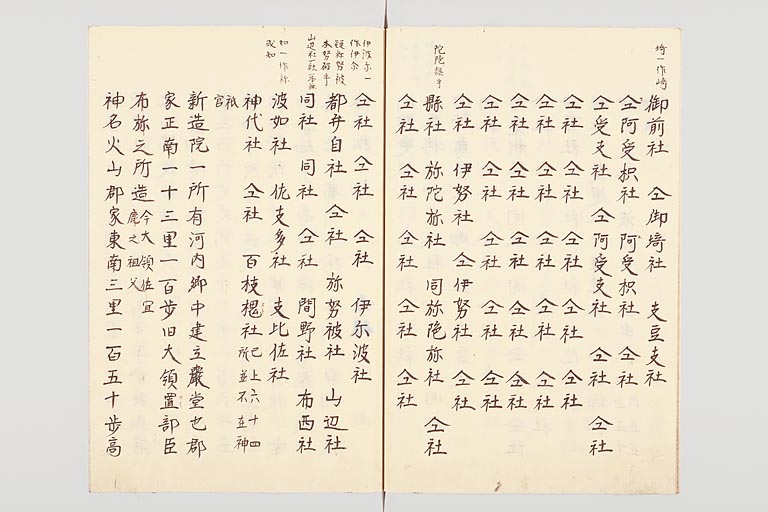 埼一作崎
御前社　仝御埼社　支豆支社
仝阿受枳社　阿受枳社　仝社
仝受支社　仝阿受支社　仝社　仝社
仝社　仝社　仝社　仝社　仝社
仝社　仝社　仝社　仝社　仝社
仝社　仝社　仝社　仝社　仝社
仝社　仝社　仝社　仝社　仝社
仝社　伊努社　仝伊努社　仝社
縣社　弥陀弥社　同弥陁弥社　仝社
仝社　仝社　仝社　仝社　仝社
伊波尓一
作伊尓
仝社　仝社　仝社　伊尓波社
都弁自社　仝社　弥努被社　山辺社
同社　同社　仝社　間野社　布西社
如一作
或知
波如社　佐支多社　支比佐社
神代社　仝社　百枝槐社　已上六十四
所並不在神
祇
官
新造院一所有河内郷中建立嚴堂也郡
家正南一十三里一百步旧大領置部臣
布弥之所造　今大領佐宜
麁之祖父
神名火山郡家東南三里一百五十步高